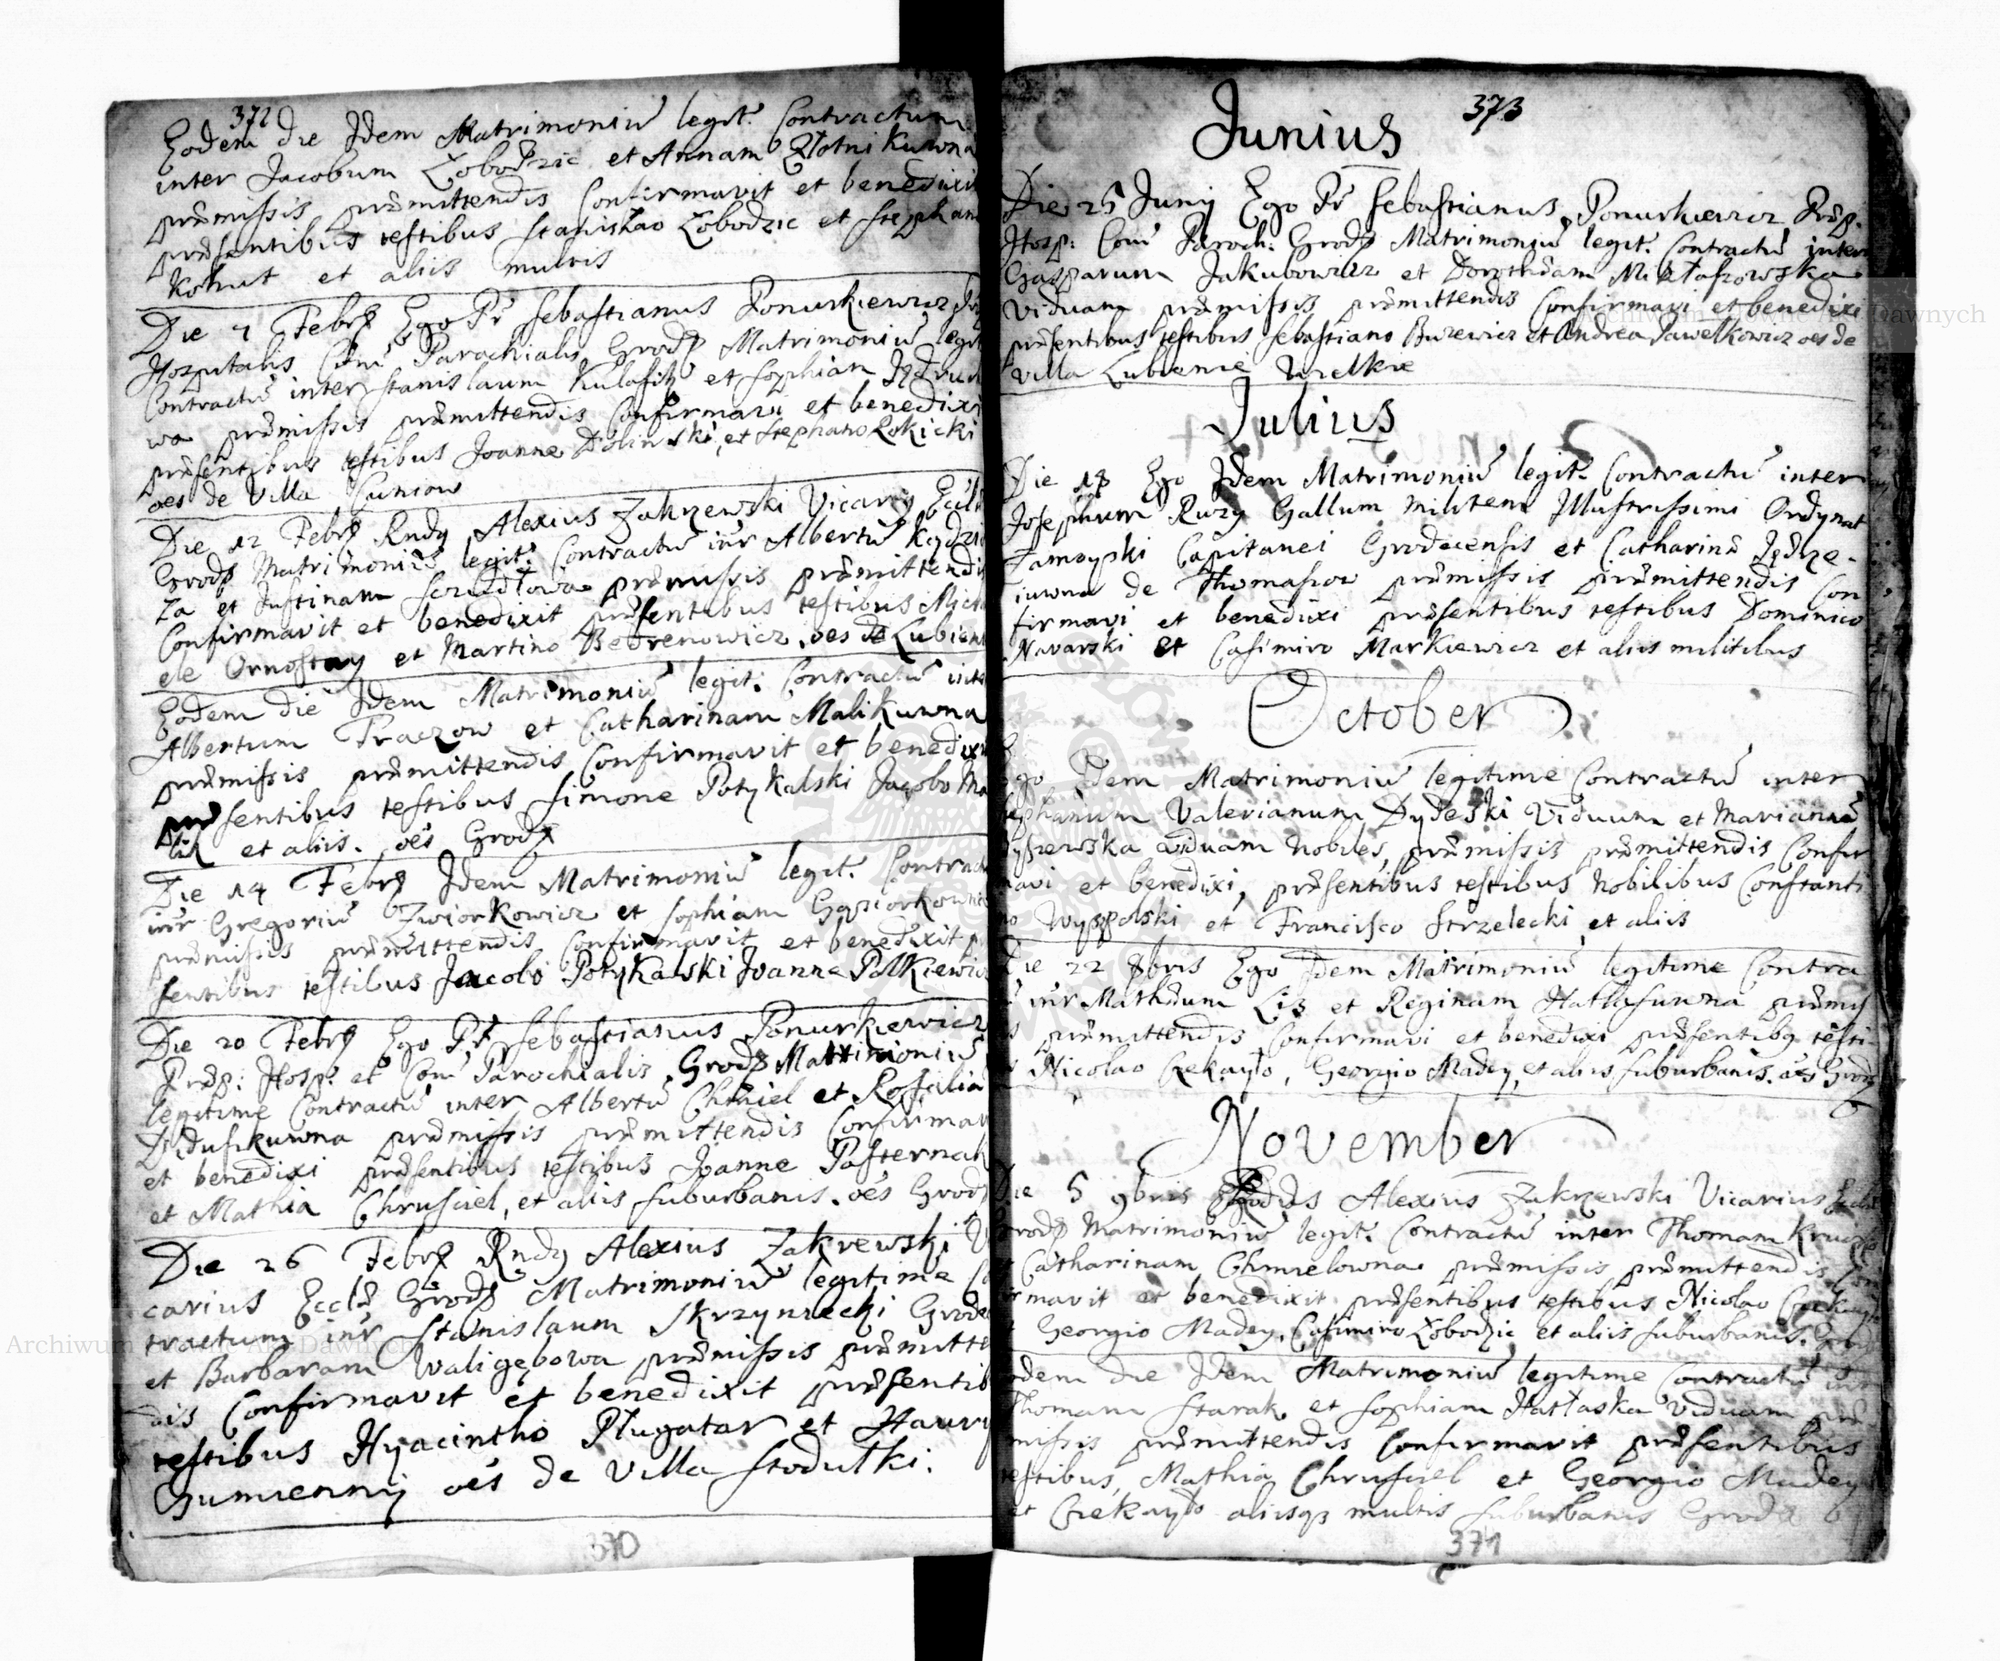 372
Eodem die Idem Matrimoniū legit. Contractum
inter Jacobum Łobodzic et Annam Złotnikuwna
præmissis præmittendis Confirmavit et benedixit
præsentibus testibus Stanislao Łobodzic et Stephan
Kohut et aliis multis
Die 7 Febry Ego Pr Sebastianus Ponurkiewicz
Hospitalis Com Parochialis Grod Matrimoniū legit
Contractū inter Stanislaum et Sophiam
wa præmissis præmittendis Confirmavi et benedixi
præsentibus testibus Joanne Dolinski, et Stephano Rokicki
oes de Villa Cuniow
Die 12 Febry Rndy Alexius Zakrzewski Vicary Eccl
Grod Matrimoniū legit. Contractū inr Albertū
za et Justinam præmissis præmittendis
Confirmavit et benedixit præsentibus testibus
ele Ornostay et Martino oes de Lubien
Eodem die Idem Matrimoniū legit. Contractū inte
Albertum Traczow et Catharinam Malikuwna
præmissis præmittendis Confirmavit et benedixi
præsentibus testibus Simone Potykalski Jacobo Ma
lik et aliis. oes Grod
Die 14 Febry Idem Matrimoniū legit. Contractū
inr Gregoriū Zwiorkowicz et Sophiam Gąsiorkowna
præmissis præmittendis Confirmavit et benedixit præ
sentibus testibus Jacobo Potykalski Joanne Polkiewicz
Die 20 Febry Ego Pr Sebastianus Ponurkiewicz
Præp: Hosp: et Com Parochialis Grod Matrimoniū
legitime Contractū inter Albertū Chmiel et Rosalia
præmissis præmittendis Confirmav
et benedixi præsentibus testibus Joanne Pasternak
et Mathia Chrusciel, et aliis suburbanis. oes Grod
Die 26 Febry Rndy Alexius Zakrewski Vi
carius Eccle Grod Matrimoniū legitime Co
tractum inr Stanislaum Skrzyniecki Grode
et Barbaram præmissis præmitte
dis Confirmavit et benedixit præsentib
testibus Hyacintho Plugatar et Hawry
Gumienny oes de Villa Stodulki.
370
373
Junius
Die 25 Juny Ego Pr Sebastianus Ponurkiewicz Præp.
Hosp: Com Paroch: Grod Matrimoniū legit. Contractū inter
Gasparum Jakubowicz et Dorotheam
Viduam præmissis præmittendis Confirmavi et benedixi
præsentibus testibus Sebastiano Burewicz et Andrea Pawelkowicz oes de
Villa Lubienie Wielkie
Julius
Die 18 Ego Idem Matrimoniū legit. Contractū inter
Josephum Ruzy Gallum militem Illustrissimi Ordynat
Zamoyski Capitanei Grodecensis et Catharinā Jędrze-
iuwna de Thomaszow præmissis præmittendis Con
firmavi et benedixi præsentibus testibus Dominico
Navarski et Casimiro Markiewicz et aliis militibus
October
Ego Idem Matrimoniū legitime Contractū inter
Stephanum Valerianum Dydeski Viduum et Mariannā
viduam Nobiles, præmissis præmittendis Confir
mavi et benedixi, præsentibus testibus Nobilibus Constanti
no Wyspolski et Francisco Strzelecki et aliis
Die 22 8bris Ego Idem Matrimoniū legitime Contra
inr Mathæum Lis et Reginam præmis
præmittendis Confirmavi et benedixi præsentibq testi
Nicolao Czekaydo, Georgio Madey, et aliis suburbanis. oes Grod
November
Die 5 9bris Alexius Zakrzewski Vicarius Eccle
Grod Matrimoniū legit. Contractū inter Thomam
Catharinam Chmielowna præmissis præmittendis Con
firmavit et benedixit præsentibus testibus Nicolao Czekaydo
Georgio Madey, Casimiro Łobodzic et aliis suburbanis. Grod
Eodem die Idem Matrimoniū legitime Contractū inr
Thomam Starak et Sophiam Hatłaska Viduam præ
missis præmittendis Confirmavit præsentibus
testibus, Mathia Chrusciel et Georgio Madey
et Czekaydo aliisq multis suburbanis Grod
371
Archiwum Główne Akt Dawnych
Archiwum Główne Akt Dawnych